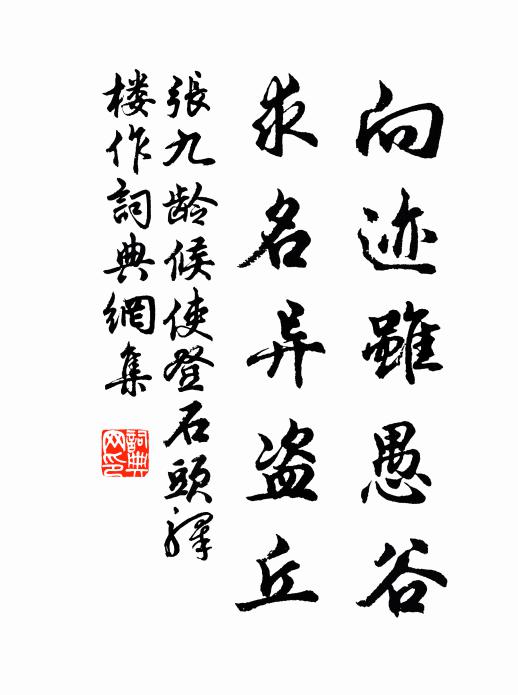 向迹雖愚谷
求名异盗丘
張九龄候使登石頭驛
楼作詞典網集
詞典网印